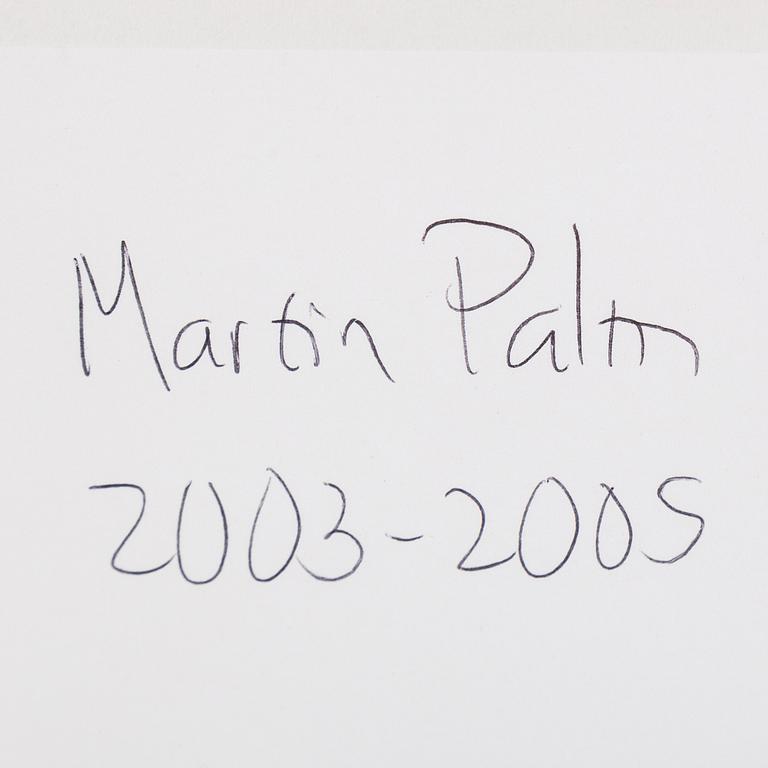 Martin Palm
2003-2005